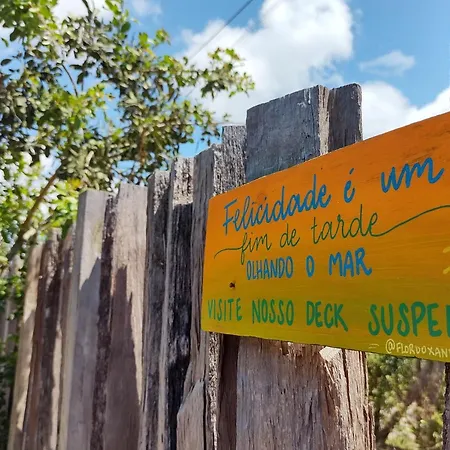 Felicidade é um
fim de tarde
OLHANDO O MAR
VISITE NOSSO DECK